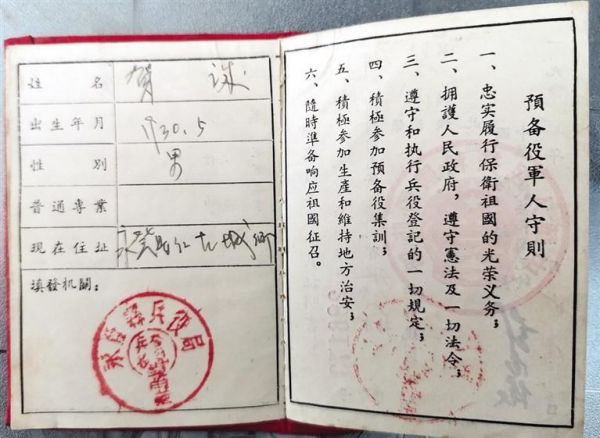 姓名 賀
出生年月 1930.5
性別 男
普通專業
現在住址
填發机關：
兵役局
預备役軍人守則
一、忠实履行保衛祖國的光荣义务；
二、拥護人民政府，遵守憲法及一切法令；
三、遵守和执行兵役登記的一切規定；
四、積極参加預备役集訓；
五、積極参加生產和維持地方治安；
六、隨時準备响应祖國征召。